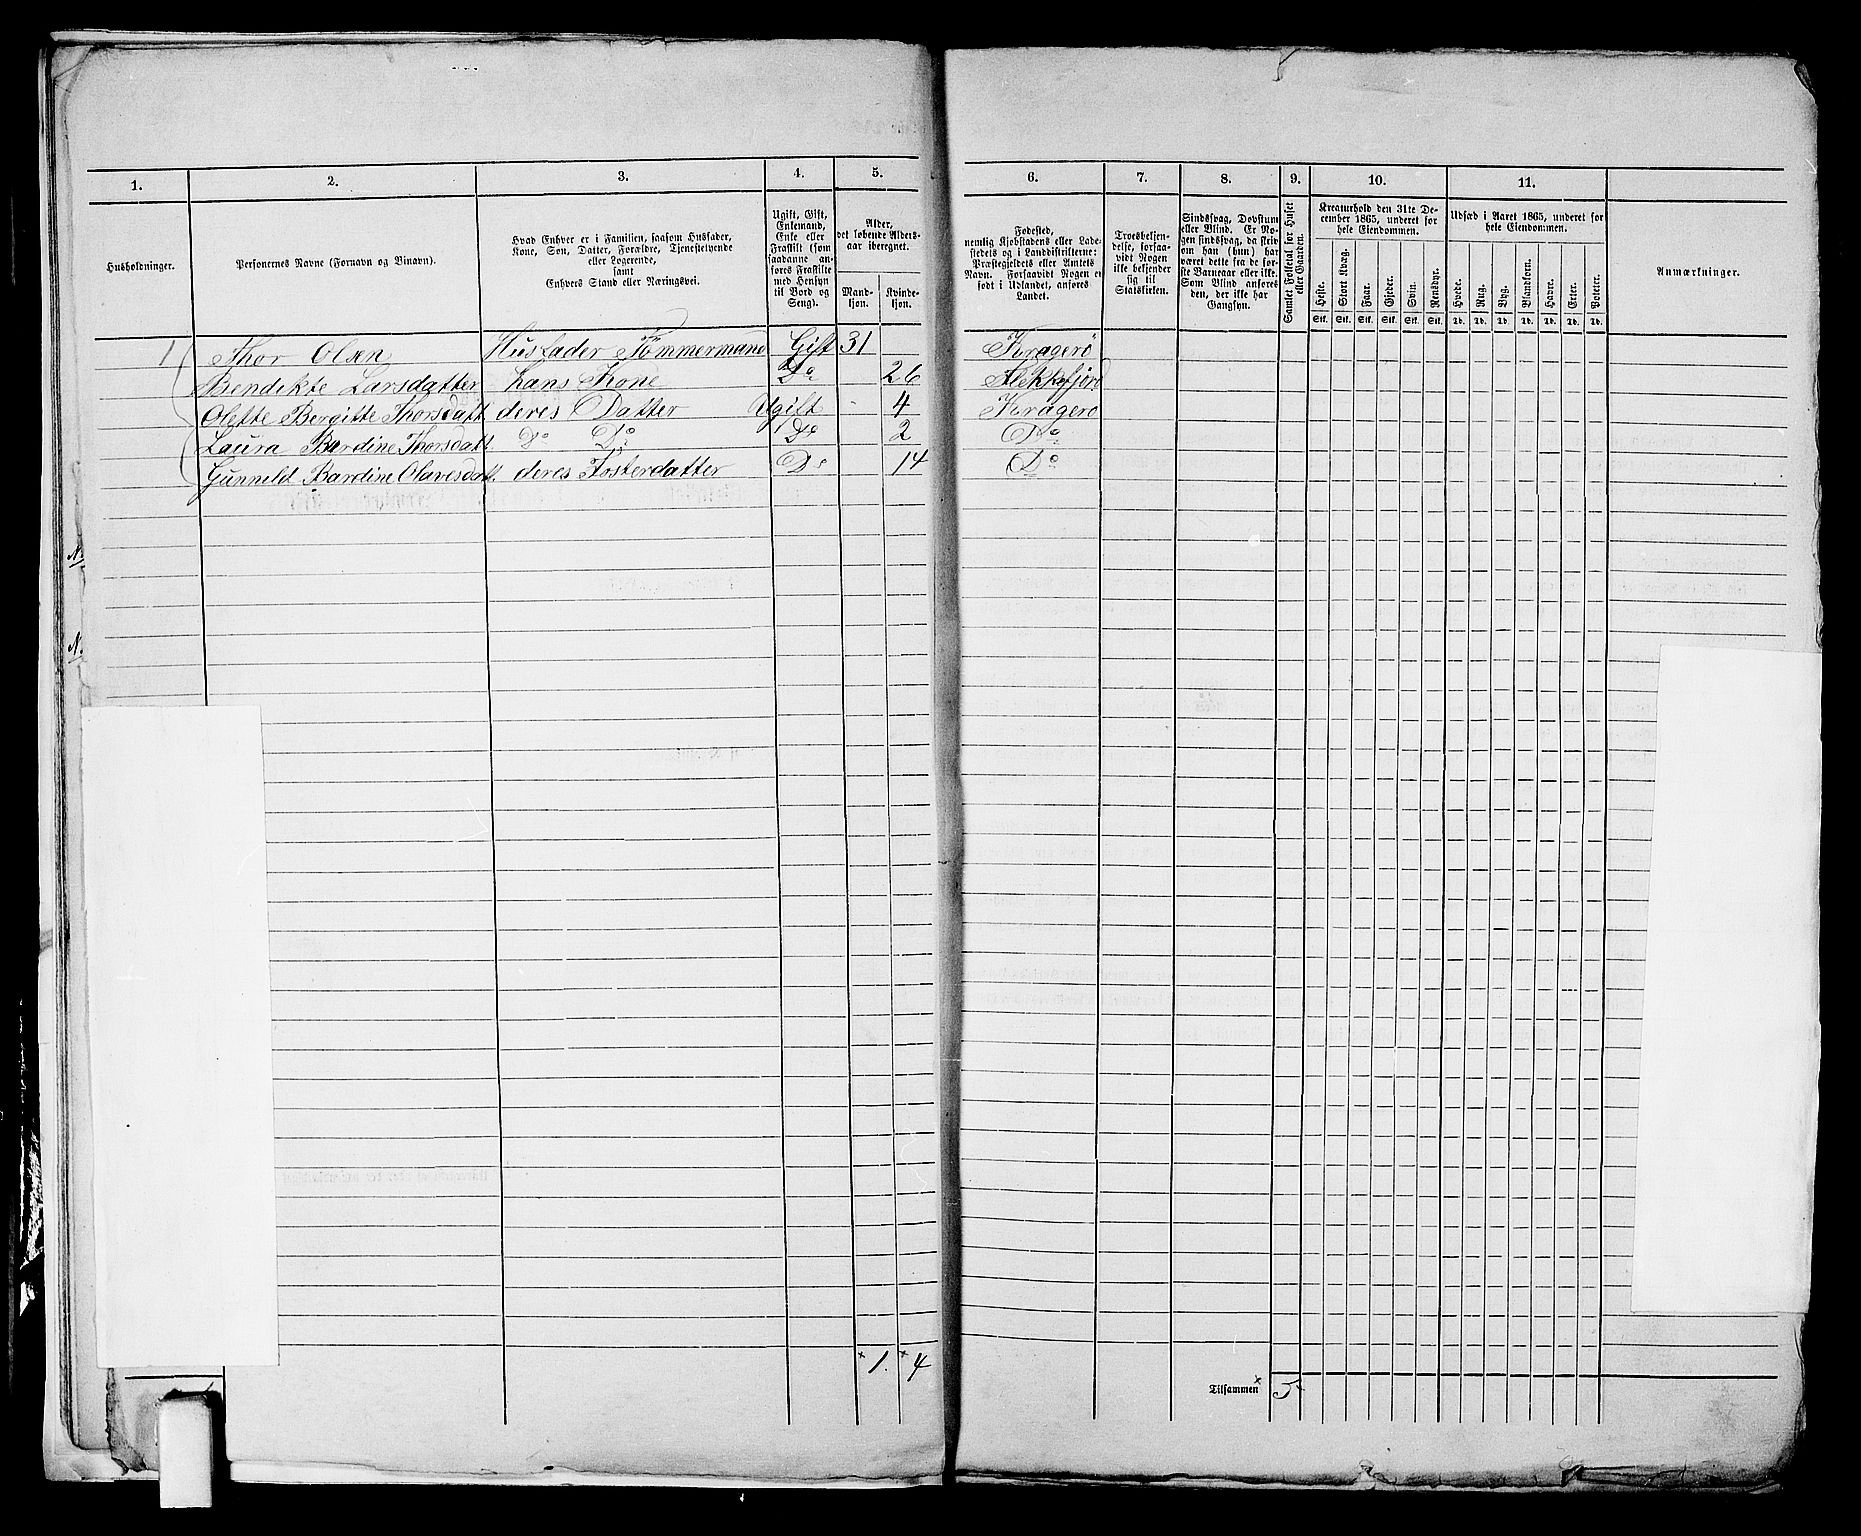 1. 2. 3. 4. 5. 6. 7. 8. 9. 10. 11.
Husholdninger.
Personernes Navne (Fornavn og Binavn).
Hvad Enhver er i Familien, saasom Husfader,
Kone, Søn, Datter, Forældre, Tjenestetyende
eller Logerende,
samt
Enhvers Stand eller Næringsvei.
Ugift, Gift,
Enkemand,
Enke eller
Fraskilt (som
saadanne an-
føres Fraskilte
med Hensyn
til Bord og
Seng).
Alder,
det løbende Alders-
aar iberegnet.
Mand-
kjøn.
Kvinde-
kjøn.
Fødested,
nemlig Kjøbstadens eller Lade-
stedets og i Landdistrikterne:
Præstegjeldets eller Amtets
Navn. Forsaavidt Nogen er
født i Udlandet, anføres
Landet.
Troesbekjen-
delse, forsaa-
vidt Nogen
ikke bekjender
sig til
Statskirken.
Sindssvag, Døvstum
eller Blind. Er No-
gen sindssvag, da skriv
om han (hun) har
været dette fra de før-
ste Barneaar eller ikke.
Som Blind anføres
den, der ikke har
Gangsyn.
Samlet Folketal for Huset
eller Gaarden.
Kreaturhold den 31te De-
cember 1865, underet for
hele Eiendommen.
Heste. Stort Kvæg. Faar. Gjeder. Svin. Rensdyr.
Stk. Stk. Stk. Stk. Stk. Stk.
Udsæd i Aaret 1865, underet for
hele Eiendommen.
Hvede. Rug. Byg. Blandkorn. Havre. Erter. Poteter.
Td. Td. Td. Td. Td. Td. Td.
Anmærkninger.
1 Thor Olsen Husfader Tømmermand Gift 31 Kragerö
Bendikte Larsdatter hans Kone Do 26 Flekkefjord
Olette Bergitte Thorsdatt deres Datter Ugift 4 Kragerö
Laura Bardine Thorsdatt. Do Do Do 2 Do
Gunnild Bardine Olavesdatt. deres Fosterdatter Do 14 Do
N.
N.
× 1. × 4
Tilsammen × 5